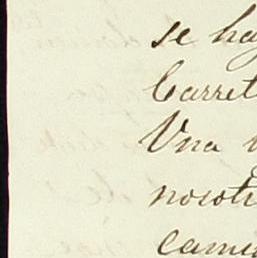 se ha
Carret
Una
nosotr
cami